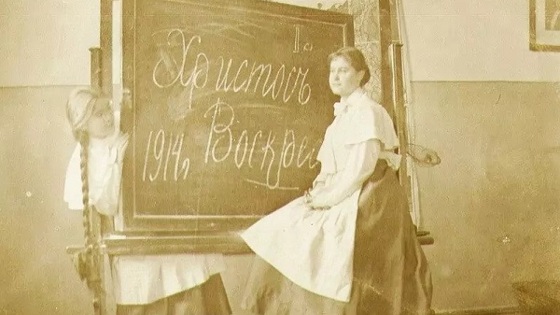 Христосъ
1914 г Воскрес